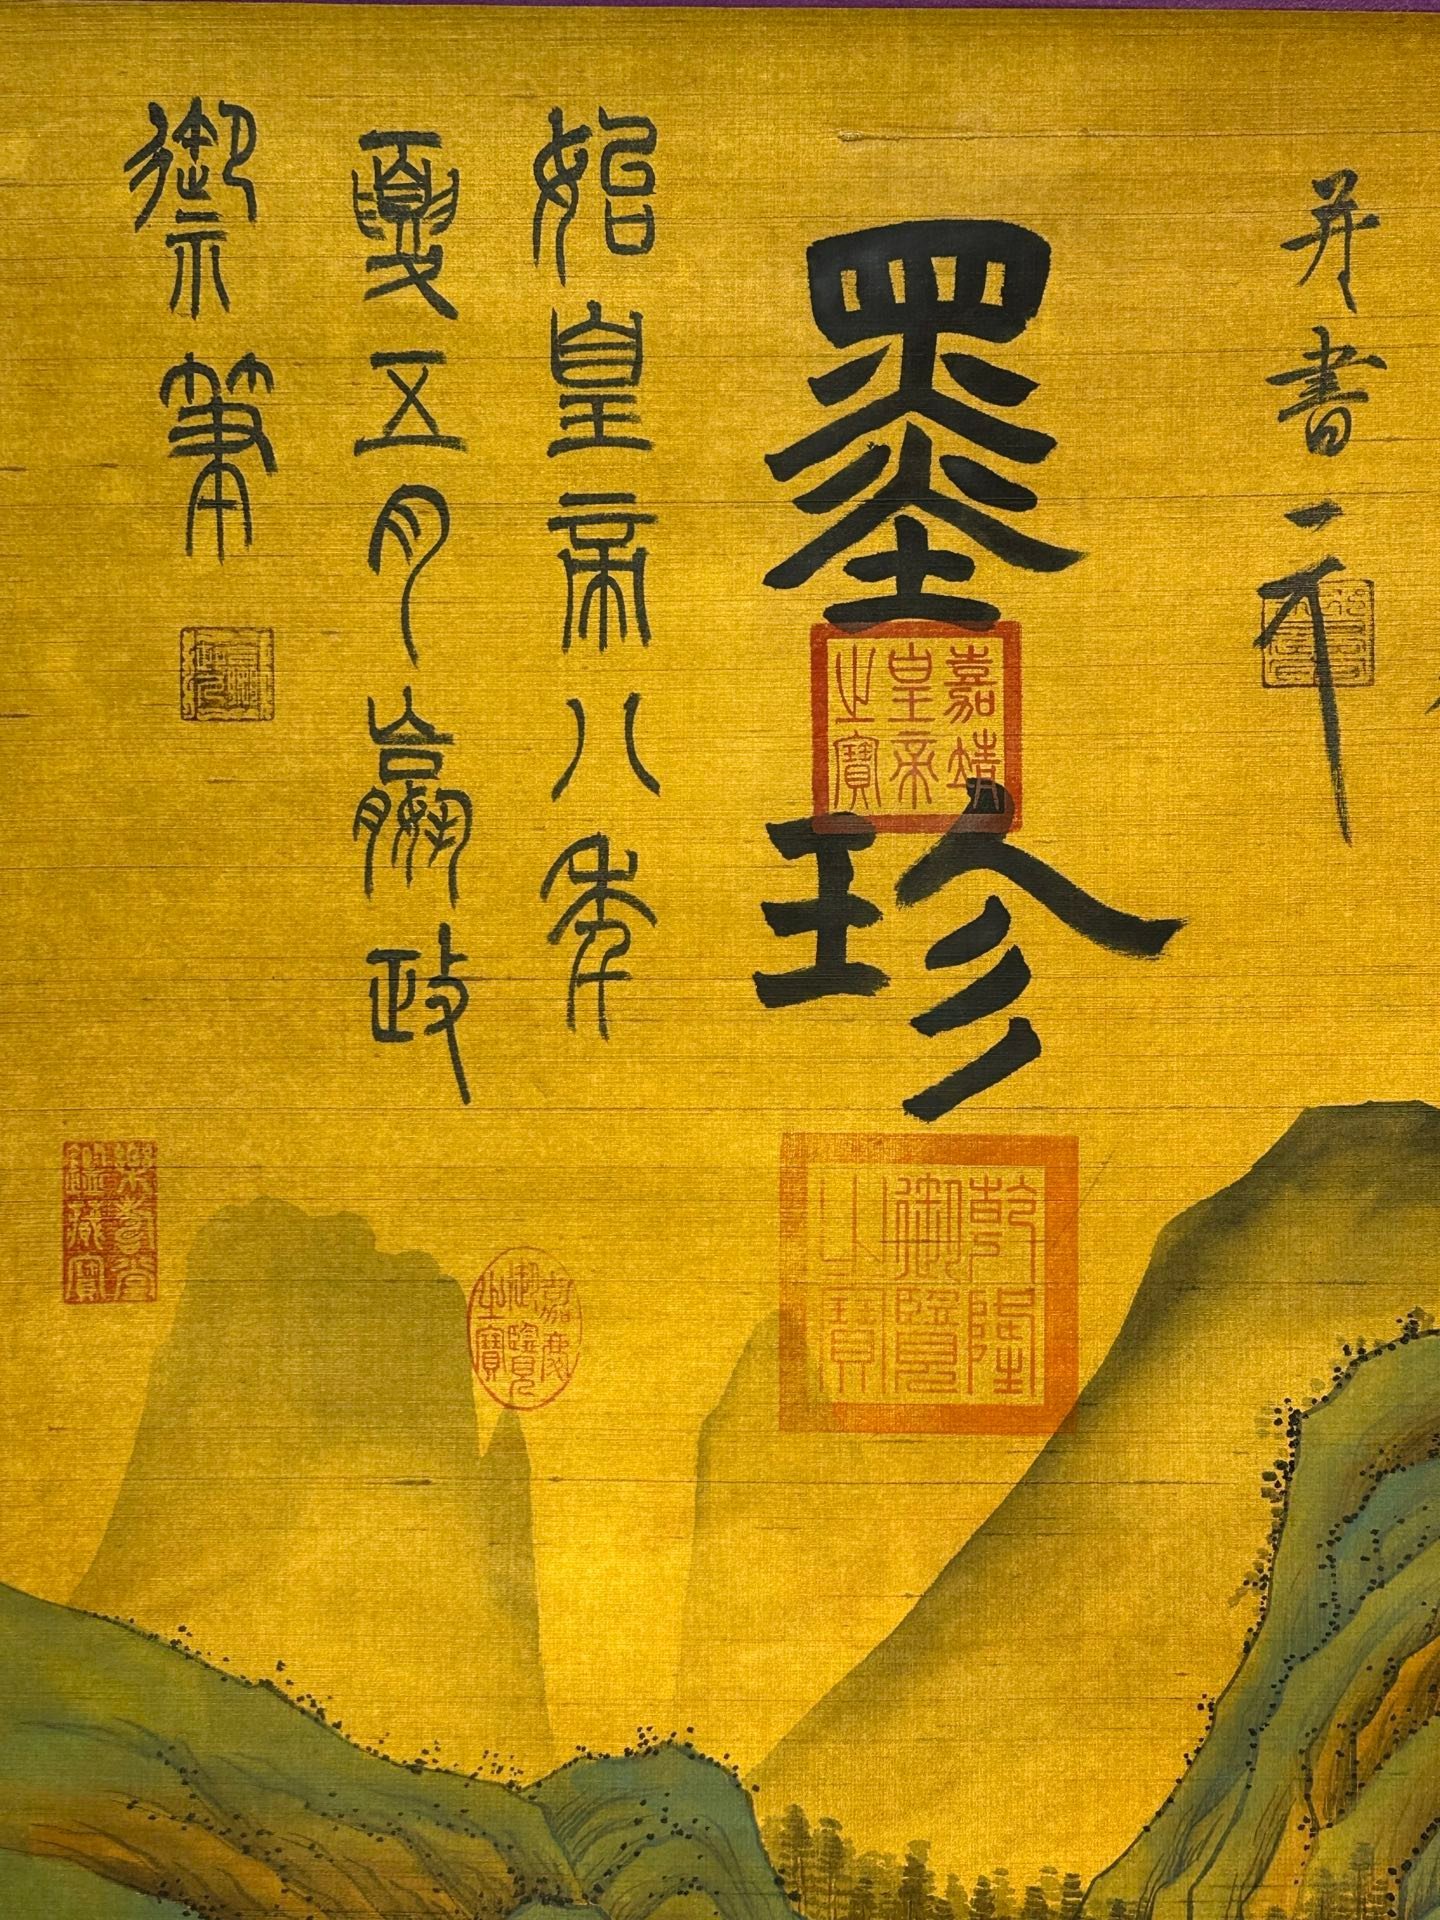 并書一千
墨珍
嘉靖
皇帝
之寶
乾隆
御覽
之寶
始皇帝八年
夏五月嬴政
御筆
嘉慶
御覽
之寶